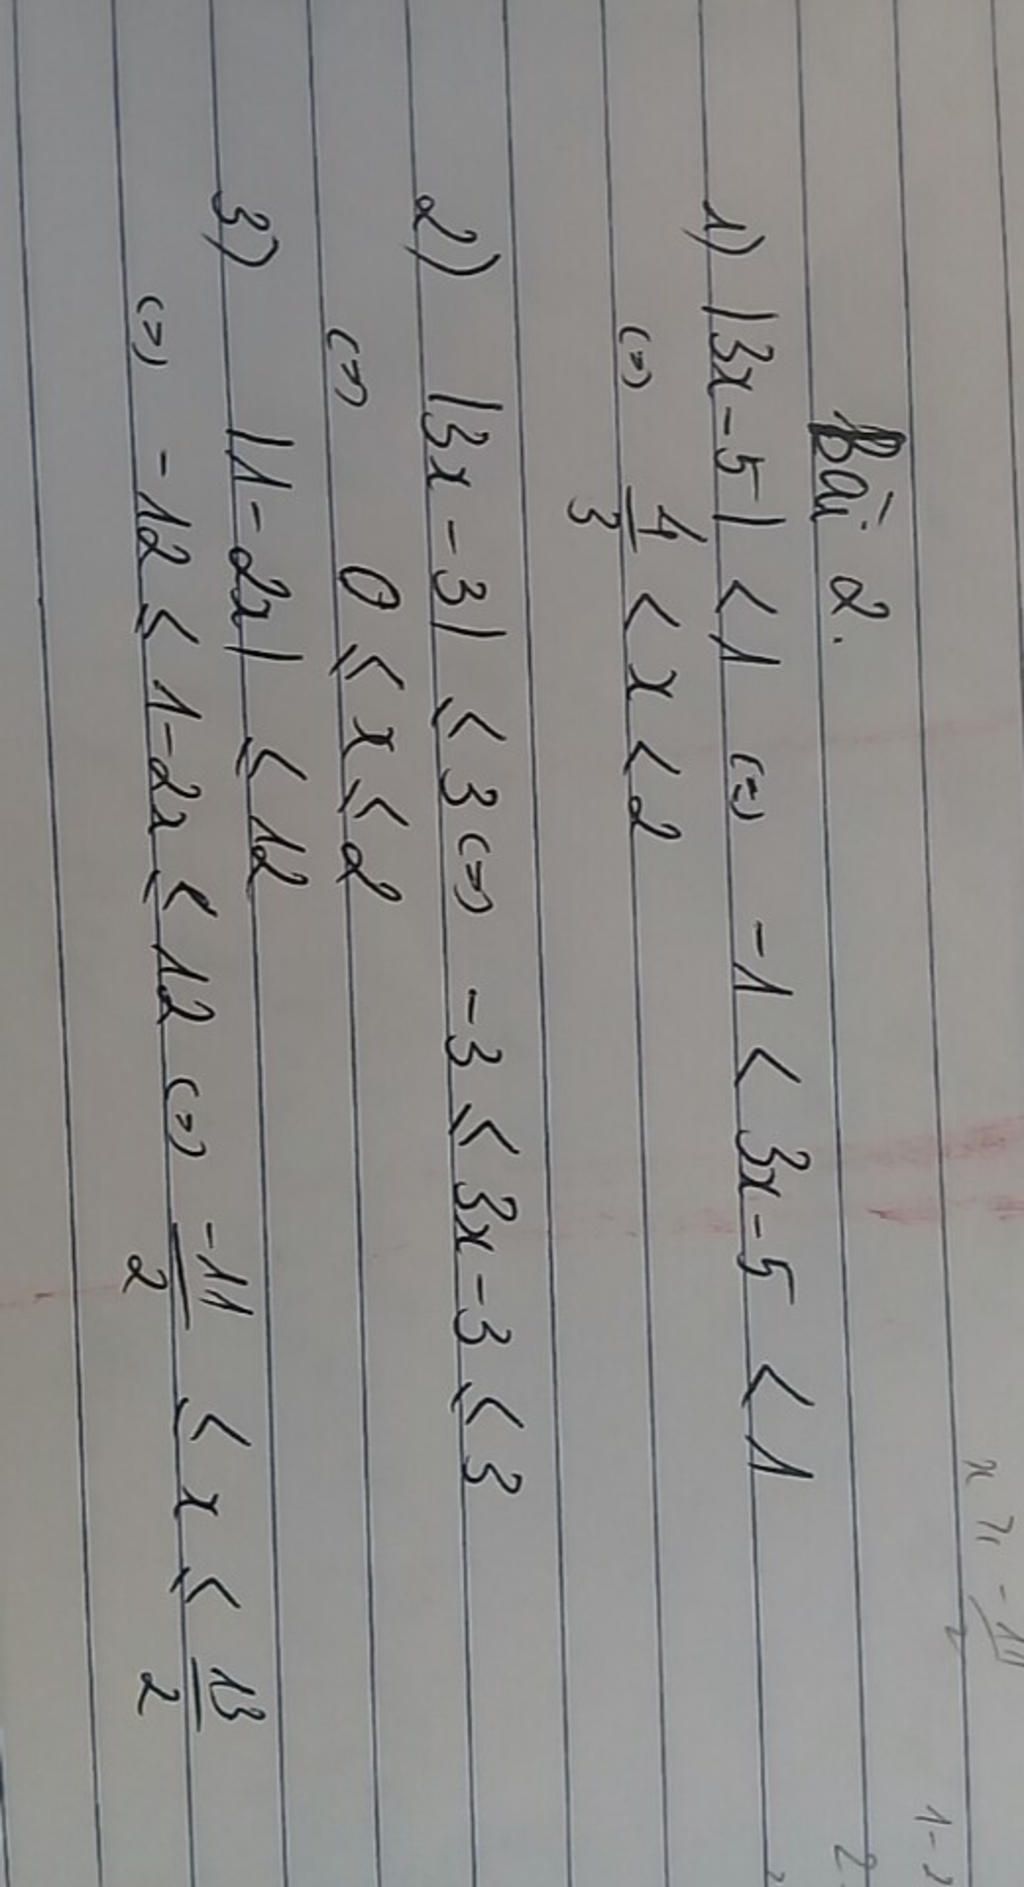 Bài 2.
1) |3x-5| < 1 (=) -1 < 3x-5 < 1
(=) 4/3 < x < 2
2) |3x-3| ≤ 3 (=) -3 ≤ 3x-3 ≤ 3
(=) 0 ≤ x ≤ 2
3) |1-2x| ≤ 12
(=) -12 ≤ 1-2x ≤ 12 (=) -11/2 ≤ x ≤ 13/2